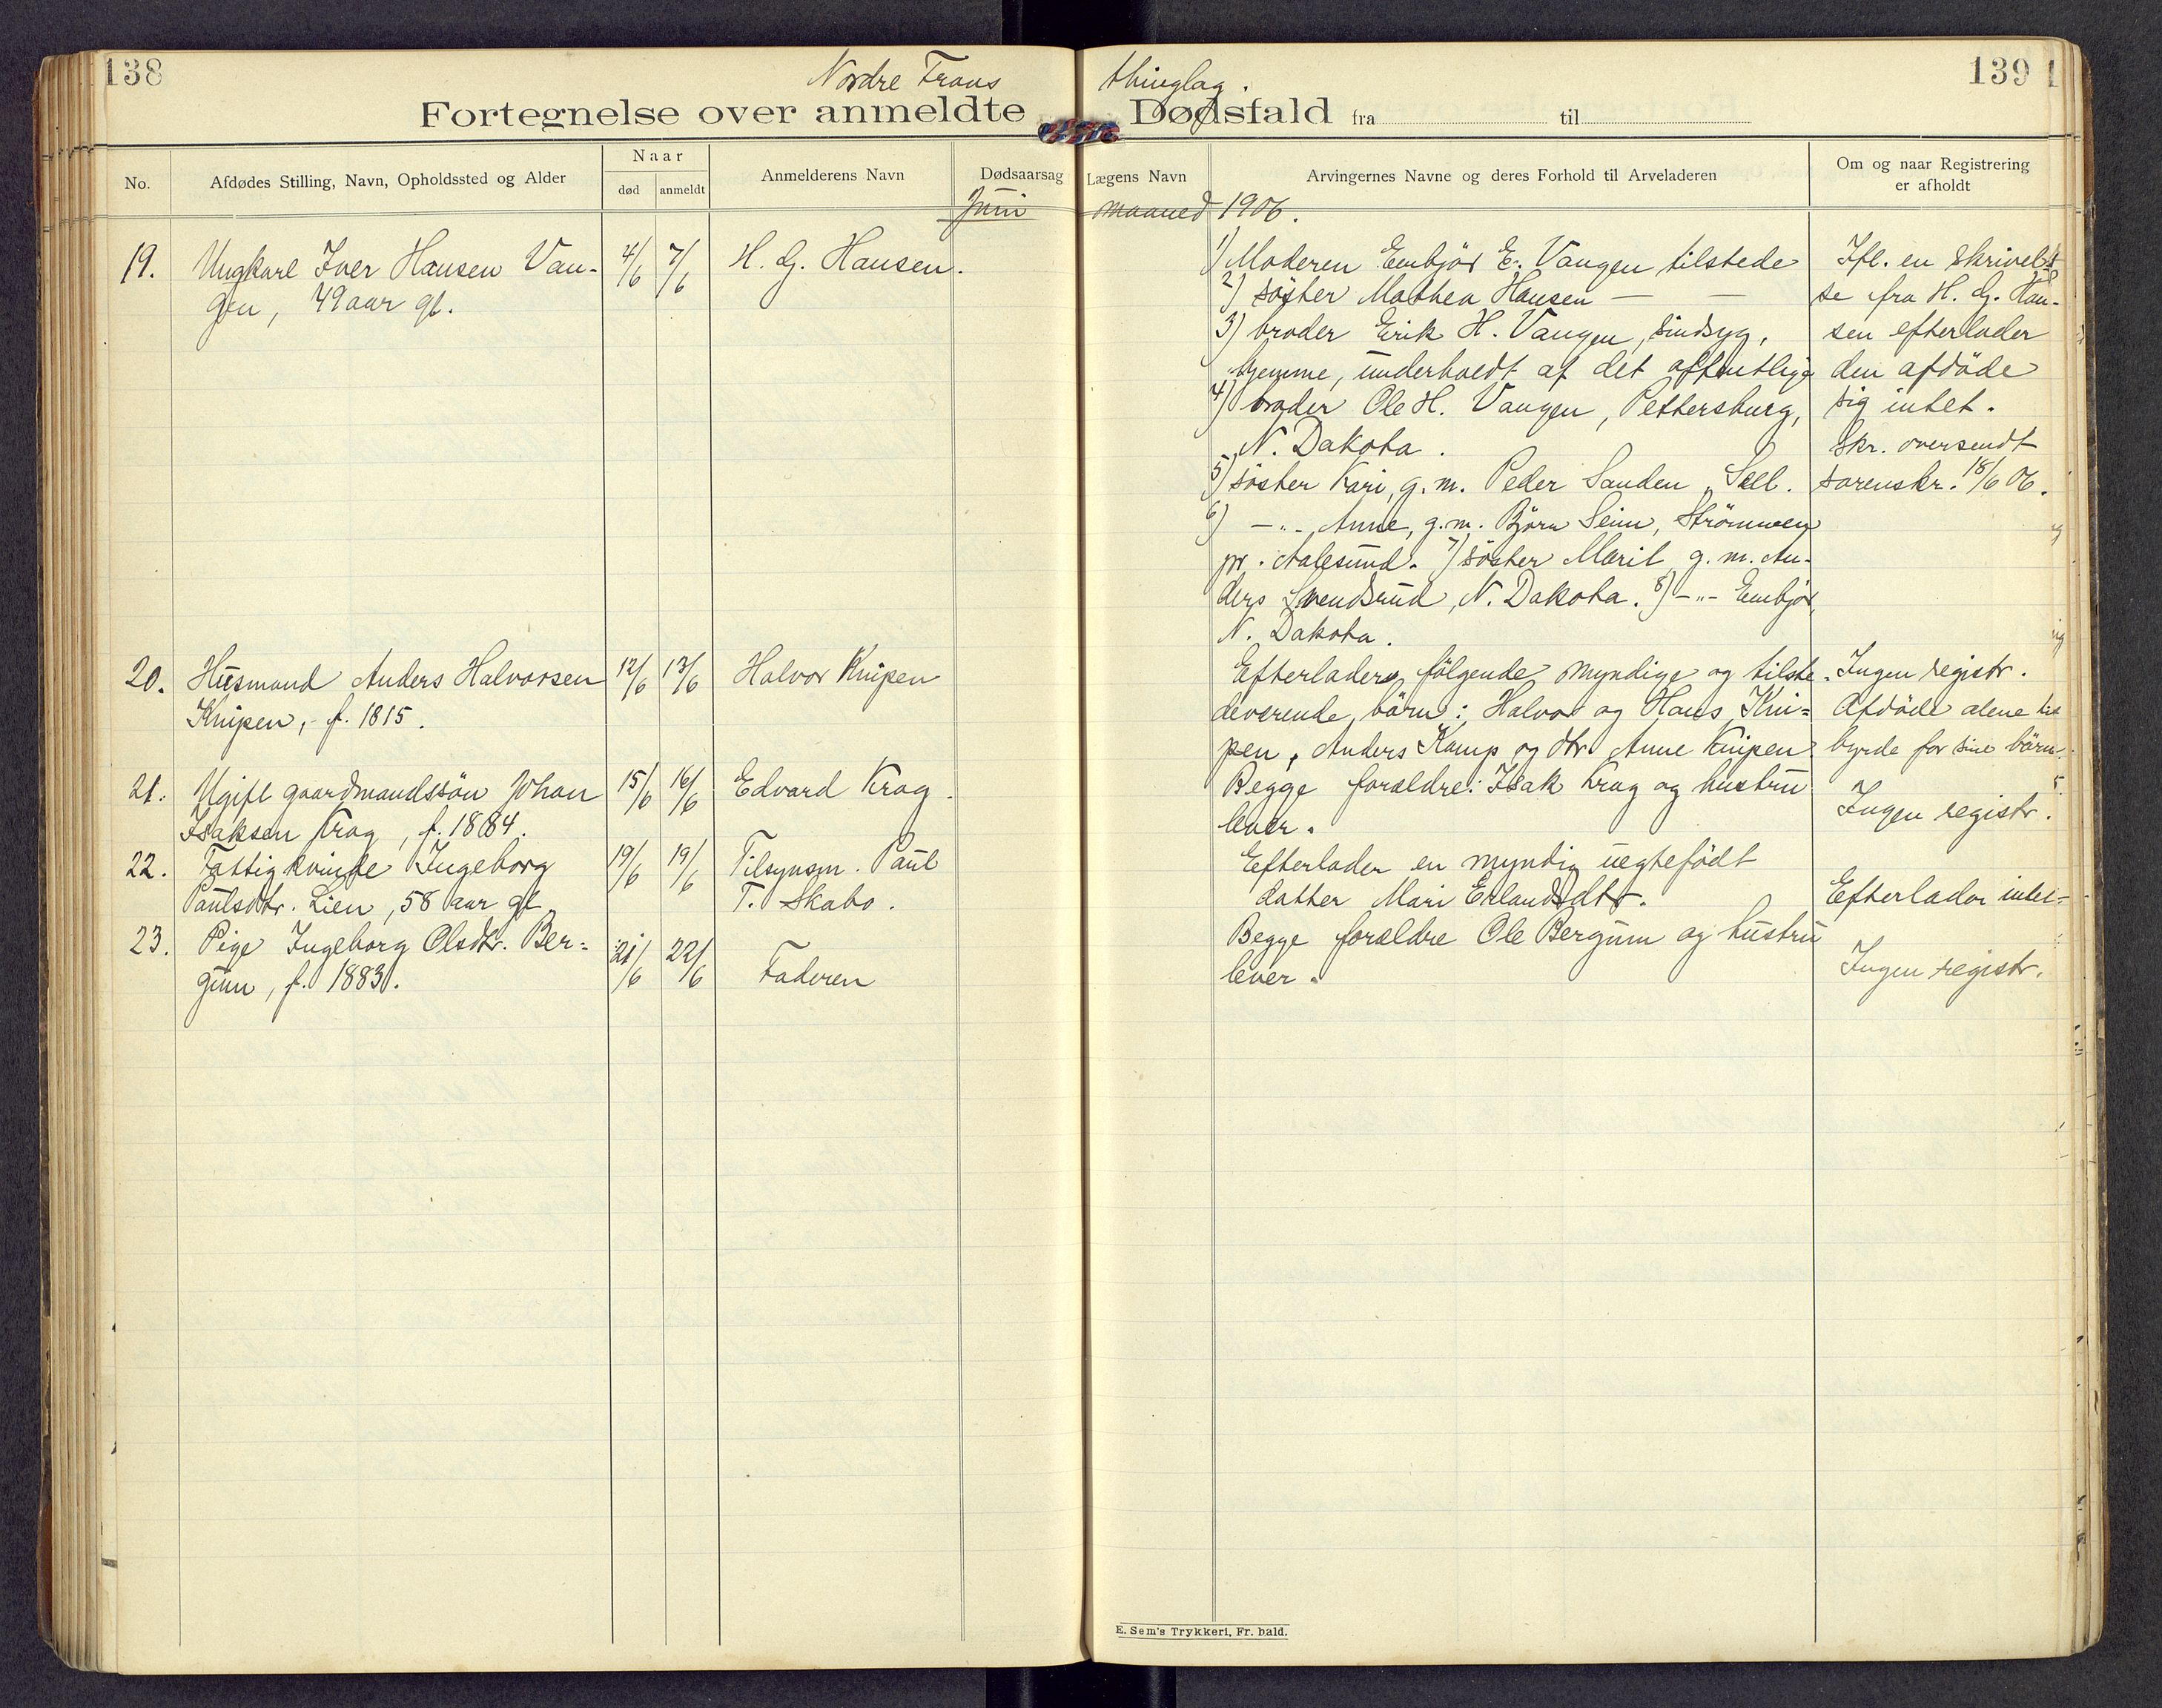 138
139
Nordre Frons thinglag.
Fortegnelse over anmeldte Dødsfald fra til
No.
Afdødes Stilling, Navn, Opholdssted og Alder
Naar
død
anmeldt
Anmelderens Navn
Dødsaarsag
Lægens Navn
Arvingernes Navne og deres Forhold til Arveladeren
Om og naar Registrering
er afholdt
Juni maaned 1906.
19.
Ungkarl Iver Hansen Van-
gen, 49 aar gl.
4/6
7/6
H. G. Hansen.
1) Moderen Embjör E. Vangen tilstede
2) söster Mathea Hansen — —
3) broder Erik H. Vangen, sindsyg,
hjemme, underholdt af det offentlige
4) broder Ole H. Vangen, Pettersburg,
N. Dakota.
5) söster Kari, g. m. Peder Sanden, Sell.
6) -"- Anne, g. m. Björn Seim, Strömmen
pr. Aalesund. 7) söster Marit g. m. An-
ders Svendsrud, N. Dakota. 8) -"- Embjör,
N. Dakota.
Ifl. en skrivel-
se fra H. G. Han-
sen efterlader
den afdöde
sig intet.
Skr. oversendt
sorenskr. 18/6 06.
20.
Husmand Anders Halvorsen
Knipen, f. 1815.
12/6
13/6
Halvor Knipen
Efterlader følgende myndige og tilste-
deværende börn: Halvor og Hans Kni-
pen, Anders Kamp og dtr. Anne Knipen.
Ingen registr.
Afdöde alene til
byrde for sine börn.
21.
Ugift gaardmandssön Johan
Isaksen Krog, f. 1884.
15/6
16/6
Edvard Krog.
Begge forældre: Isak Krog og hustru
lever.
Ingen registr.
22.
Fattigkvinde Ingeborg
Paulsdtr. Lien, 58 aar gl.
19/6
19/6
Tilsynsm. Paul
T. Skabo.
Efterlader en myndig uegtefödt
datter Mari Erlandsdtr.
Efterlader intet
23.
Pige Ingeborg Olsdtr. Ber-
gum, f. 1883.
21/6
22/6
Faderen
Begge forældre Ole Bergum og hustru
lever.
Ingen registr.
E. Sem's Trykkeri, Fr. hald.